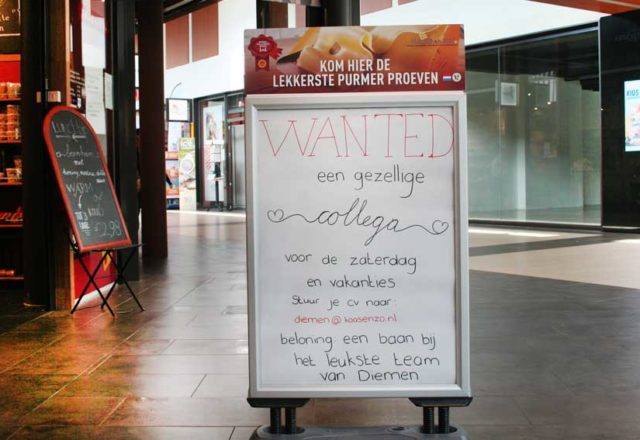 KOM HIER DE
LEKKERSTE PURMER PROEVEN
WANTED
een gezellige
collega
voor de zaterdag
en vakanties
Stuur je cv naar:
diemen@kaasenzo.nl
beloning een baan bij
het leukste team
van Diemen
LUNCH
WARM
2,98
KIDS